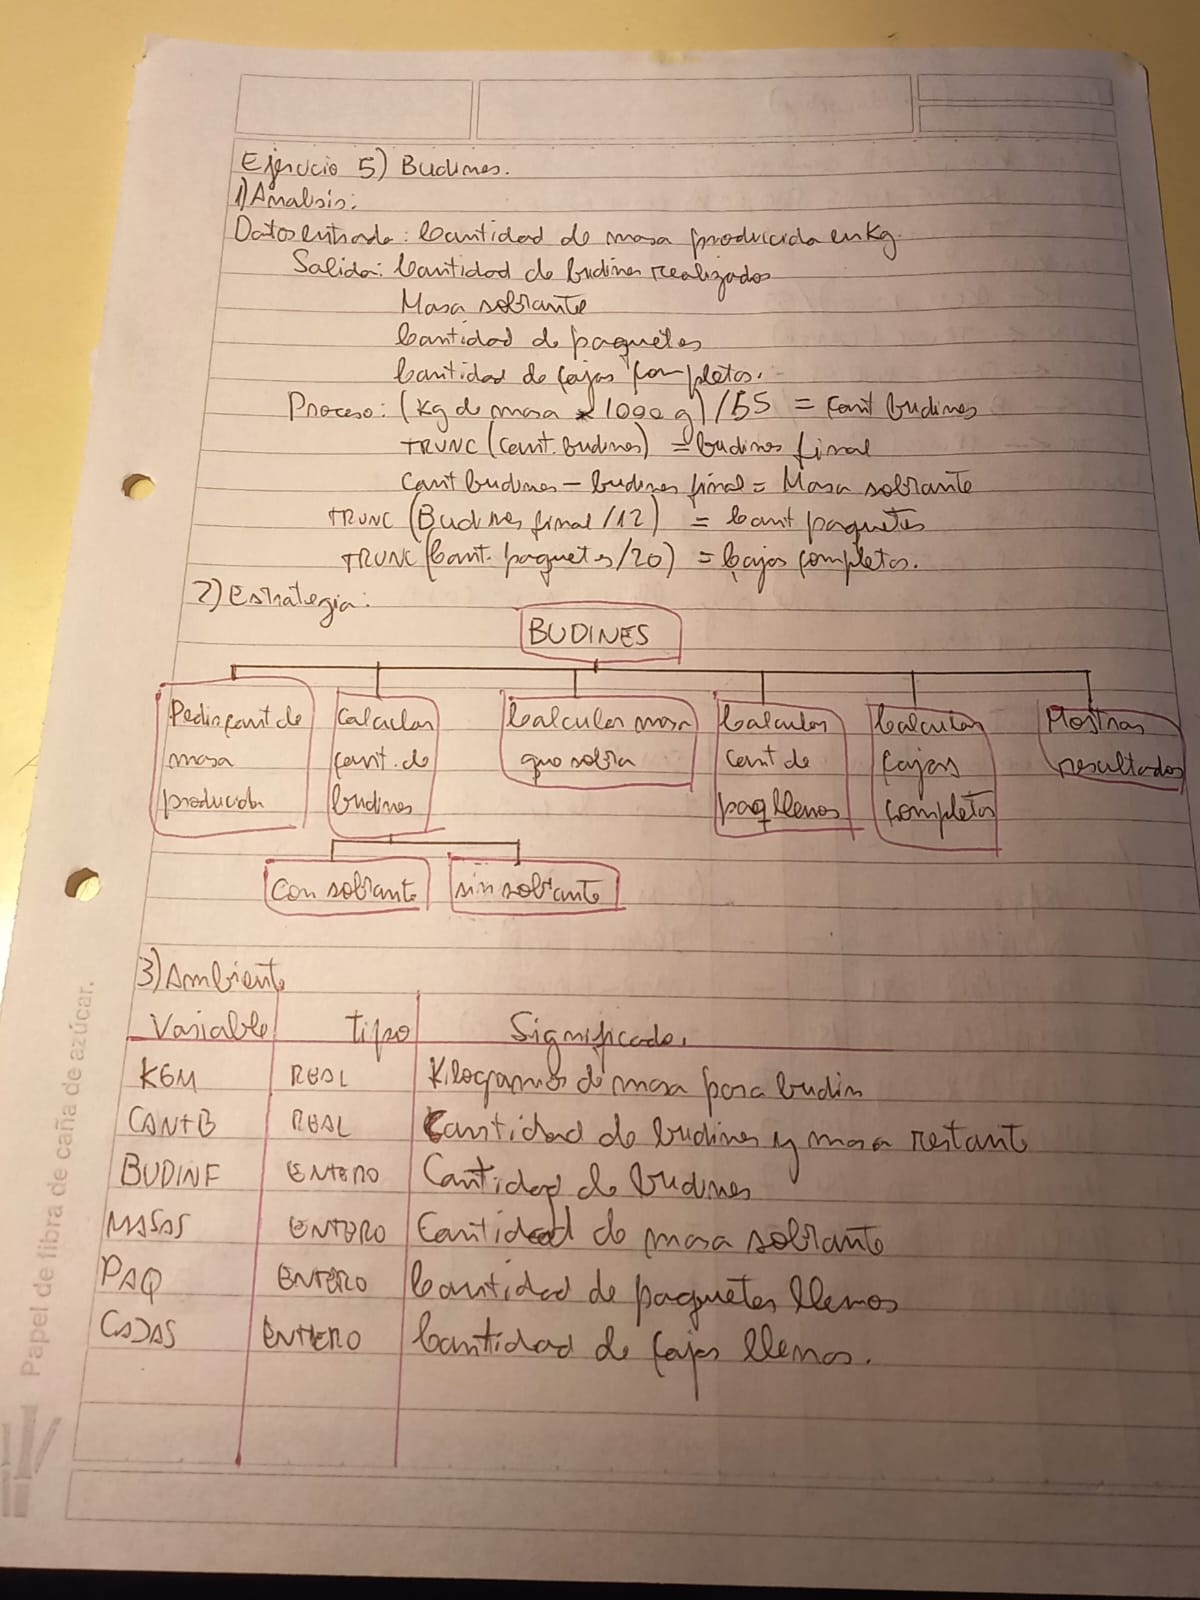 Ejercicio 5) Budines.
1) Analisis:
Datos entrada: Cantidad de masa producida en Kg.
Salida: Cantidad de budines realizados
Masa sobrante
Cantidad de paquetes
Cantidad de cajas completas.
Proceso: (Kg de masa * 1000 g) / 55 = Cant budines
TRUNC (Cant. budines) = budines final
Cant budines - budines final = Masa sobrante
TRUNC (Budines final / 12) = Cant paquetes
TRUNC (Cant. paquetes / 20) = Cajas completas.
2) Estrategia:
BUDINES
Pedir cant de masa producida
Calcular cant. de budines
Calcular masa que sobra
Calcular cant de paq llenos
Calcular cajas completas
Mostrar resultados
Con sobrante
sin sobrante
3) Ambiente
Variable Tipo Significado.
KGM REAL Kilogramos de masa para budin
CANTB REAL Cantidad de budines y masa restante
BUDINF ENTERO Cantidad de budines
MASAS ENTERO Cantidad de masa sobrante
PAQ ENTERO Cantidad de paquetes llenos
CAJAS ENTERO Cantidad de cajas llenas.
Papel de fibra de caña de azúcar.